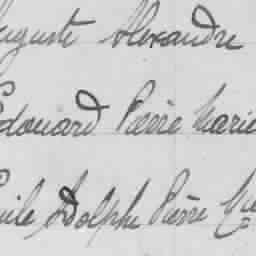 Auguste Alexandre
Edouard Pierre Marie
Emile Adolphe Pierre